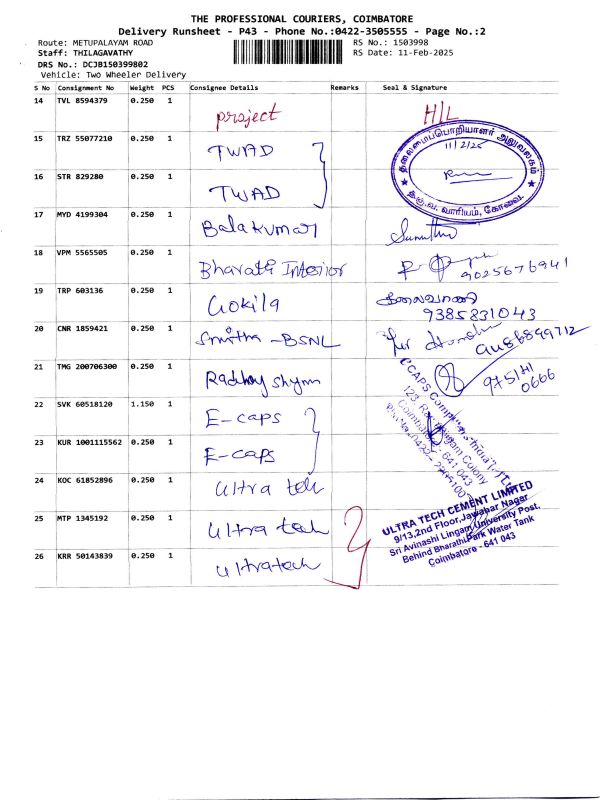 THE PROFESSIONAL COURIERS, COIMBATORE
Delivery Runsheet - P43 - Phone No.:0422-3505555 - Page No.:2
Route: METUPALAYAM ROAD
RS No.: 1503998
Staff: THILAGAVATHY
RS Date: 11-Feb-2025
DRS No.: DCJB150399802
Vehicle: Two Wheeler Delivery
S No Consignment No Weight PCS Consignee Details Remarks Seal & Signature
14 TVL 8594379 0.250 1 project H/L
15 TRZ 55077210 0.250 1 TWAD
தலைமைப்பொறியாளர் அலுவலகம்
11/2/25
த.கு.வ. வாரியம், கோவை.
16 STR 829280 0.250 1 TWAD
17 MYD 4199304 0.250 1 Balakumar
18 VPM 5565505 0.250 1 Bharath Interior
9025676941
19 TRP 603136 0.250 1 Gokila
கலைவாணி
9385831043
20 CNR 1859421 0.250 1 Smitha - BSNL
21 TMG 200706300 0.250 1 Radhay shyam
975141
0666
22 SVK 60518120 1.150 1 E-caps
23 KUR 1001115562 0.250 1 E-caps
24 KOC 61852896 0.250 1 Ultra tech
25 MTP 1345192 0.250 1 Ultra tech
26 KRR 50143839 0.250 1 Ultratech
ULTRA TECH CEMENT LIMITED
9/13,2nd Floor,Jawahar Nagar
Sri Avinashi Lingam University Post,
Behind Bharathi Park Water Tank
Coimbatore - 641 043